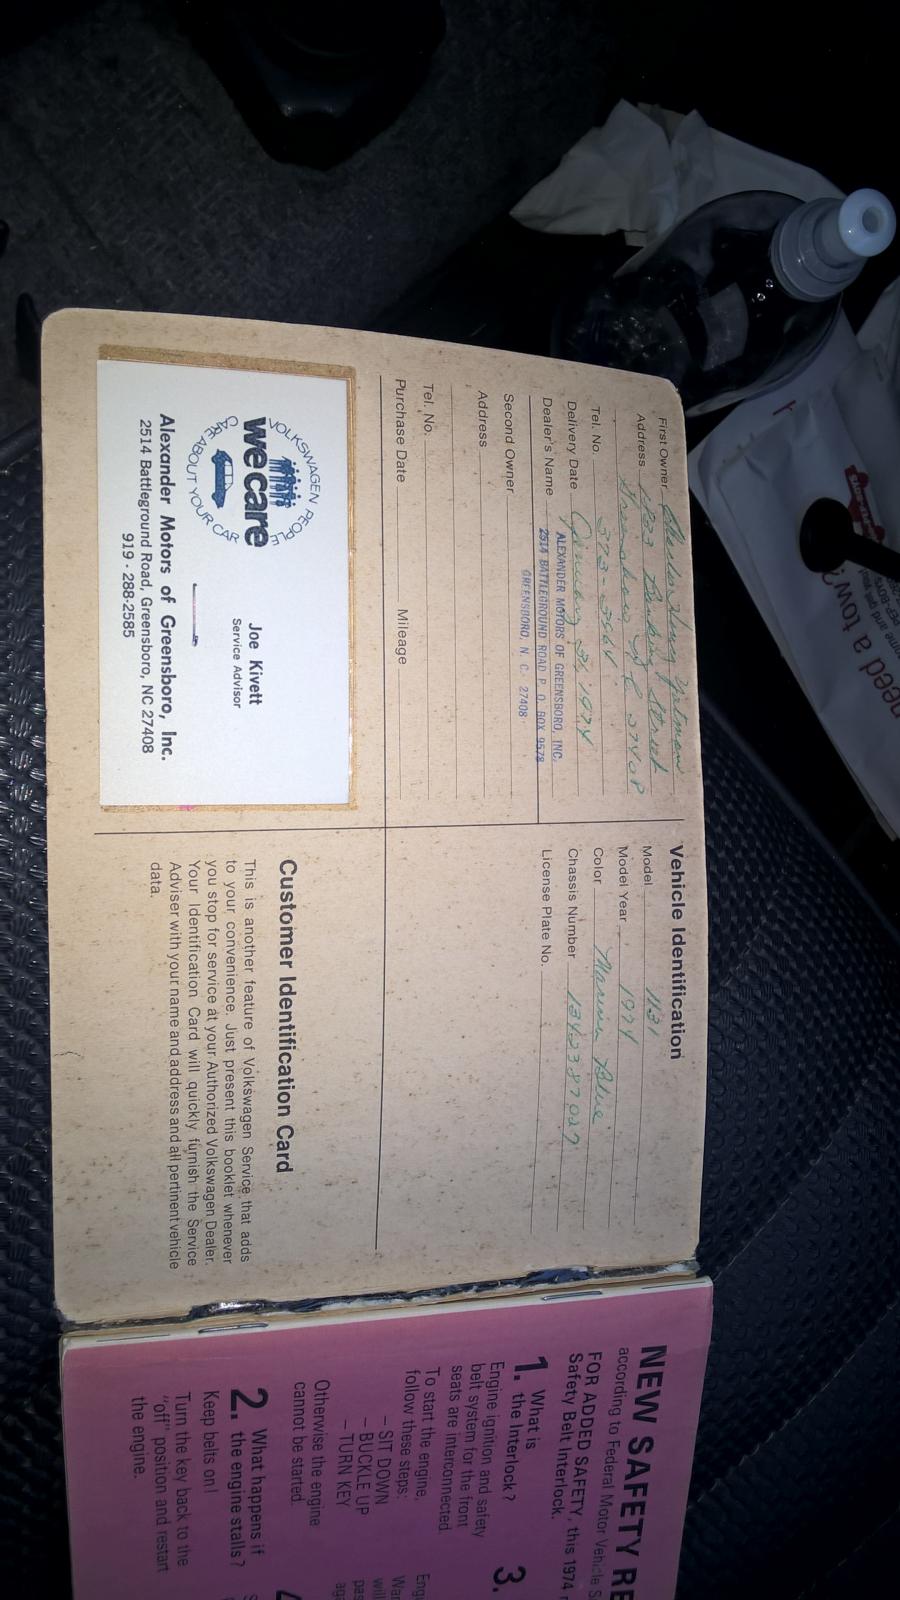 First Owner
Address 1823 Banking Street
Greensboro N C 27408
Tel. No. 373-3664
Delivery Date January 31, 1974
Dealer's Name ALEXANDER MOTORS OF GREENSBORO, INC.
2514 BATTLEGROUND ROAD P. O. BOX 9578
GREENSBORO, N. C. 27408
Second Owner
Address
Tel. No.
Purchase Date Mileage
VOLKSWAGEN PEOPLE
we care
CARE ABOUT YOUR CAR
Joe Kivett
Service Advisor
Alexander Motors of Greensboro, Inc.
2514 Battleground Road, Greensboro, NC 27408
919 - 288-2585
Vehicle Identification
Model 1131
Model Year 1974
Color Marina Blue
Chassis Number 1342387027
License Plate No.
Customer Identification Card
This is another feature of Volkswagen Service that adds
to your convenience. Just present this booklet whenever
you stop for service at your Authorized Volkswagen Dealer.
Your Identification Card will quickly furnish the Service
Adviser with your name and address and all pertinent vehicle
data.
NEW SAFETY RE
according to Federal Motor Vehicle S
FOR ADDED SAFETY, this 1974
Safety Belt Interlock.
1. What is
the Interlock?
Engine ignition and safety
belt system for the front
seats are interconnected.
To start the engine,
follow these steps:
– SIT DOWN
– BUCKLE UP
– TURN KEY
Otherwise the engine
cannot be started.
2. What happens if
the engine stalls?
Keep belts on!
Turn the key back to the
"off" position and restart
the engine.
3.
need a tow?